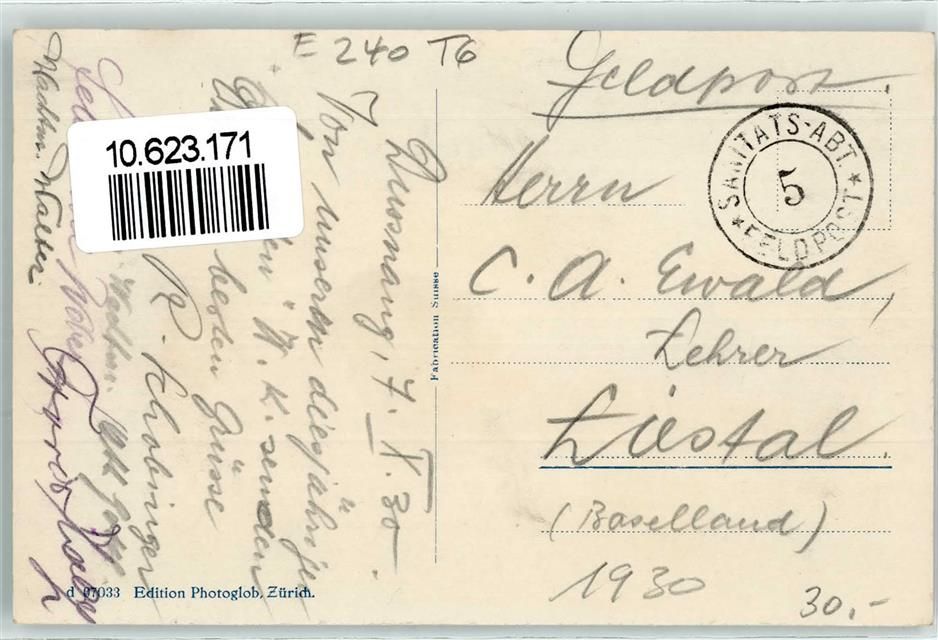 E 240 T6
Feldpost.
SANITÄTS-ABT. ★ FELDPOST ★
5
Herrn
C. A. Ewald,
Lehrer
Liestal.
(Baselland)
1930
30.-
Fabrication Suisse
Dussnang, 7. X. 30.
Von unserem diesjährigen
W. K. senden
besten Grüsse
R. Schobinger
Wachtm. Walter
10.623.171
d 07033 Edition Photoglob, Zürich.